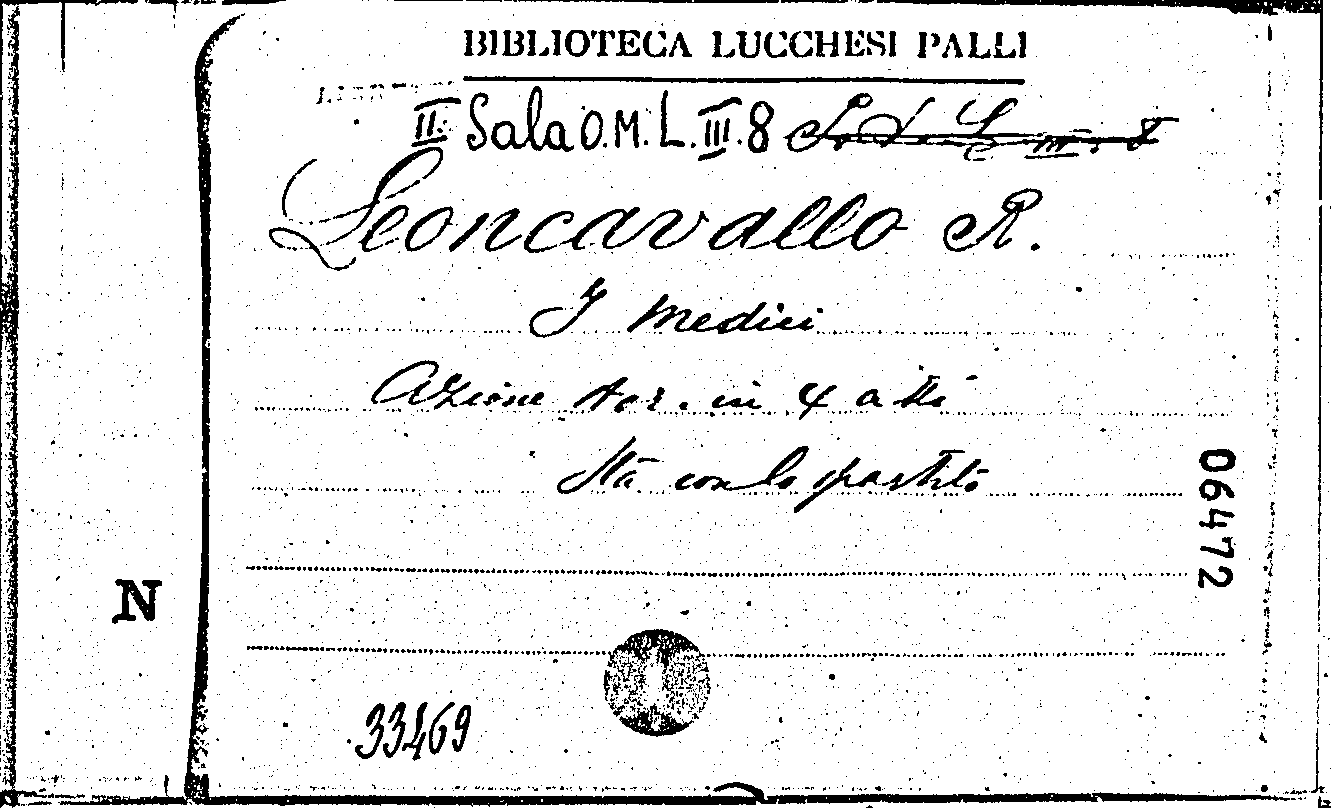 BIBLIOTECA LUCCHESI PALLI
II. Sala O.M. L. III. 8
Leoncavallo R.
I Medici
Azione ster. in 4 atti
Sta con lo spartito
06472
N
33469